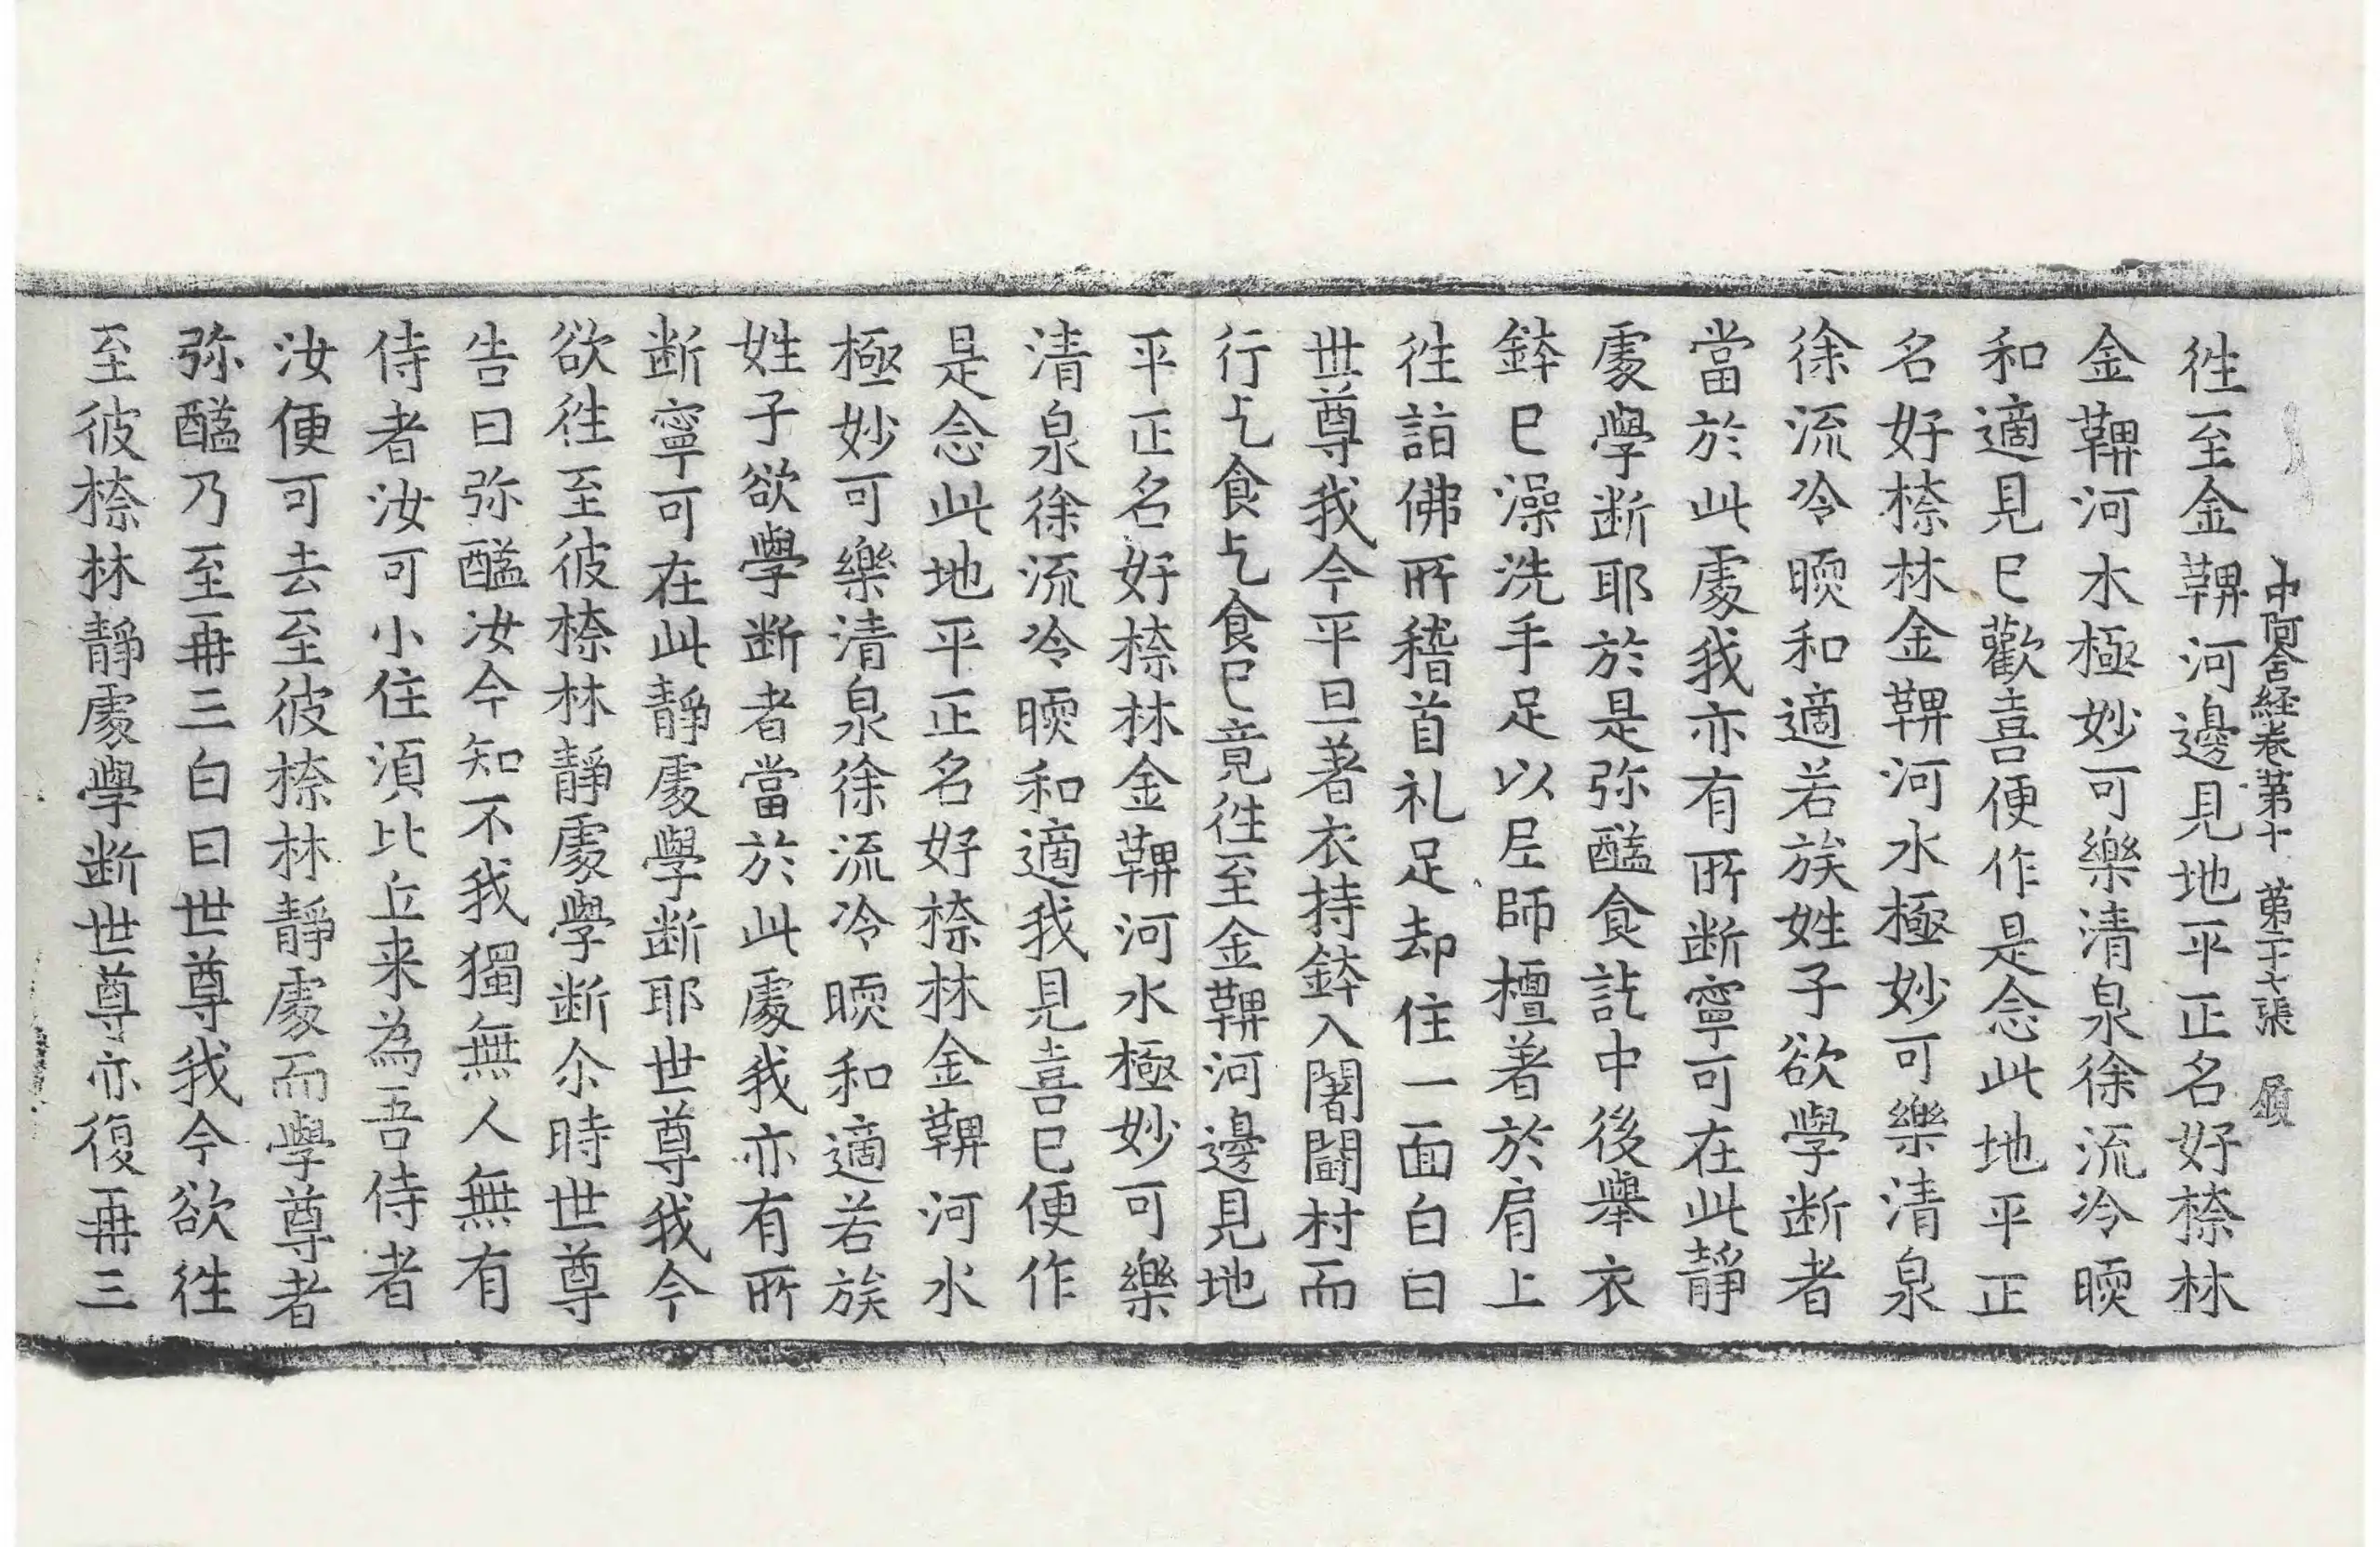 中阿含経卷苐十 苐二十七張
徃至金鞞河邊見地平正名好㮈林
金鞞河水極妙可樂清泉徐流冷暝
和適見巳歡喜便作是念此地平正
名好㮈林金鞞河水極妙可樂清泉
徐流冷暝和適若族姓子欲學断者
當於此處我亦有所断寧可在此靜
處學断耶於是弥醯食訖中後舉衣
鉢巳澡洗手足以尼師檀著於肩上
徃詣佛所稽首礼足却住一面白曰
世尊我今平旦著衣持鉢入闍鬪村而
行乞食乞食巳竟徃至金鞞河邊見地
平正名好㮈林金鞞河水極妙可樂
清泉徐流冷暝和適我見喜巳便作
是念此地平正名好㮈林金鞞河水
極妙可樂清泉徐流冷暝和適若族
姓子欲學断者當於此處我亦有所
断寧可在此靜處學断耶世尊我今
欲徃至彼㮈林靜處學断尒時世尊
告曰弥醯汝今知不我獨無人無有
侍者汝可小住湏比丘来為吾侍者
汝便可去至彼㮈林靜處而學尊者
弥醯乃至再三白曰世尊我今欲徃
至彼㮈林靜處學断世尊亦復再三